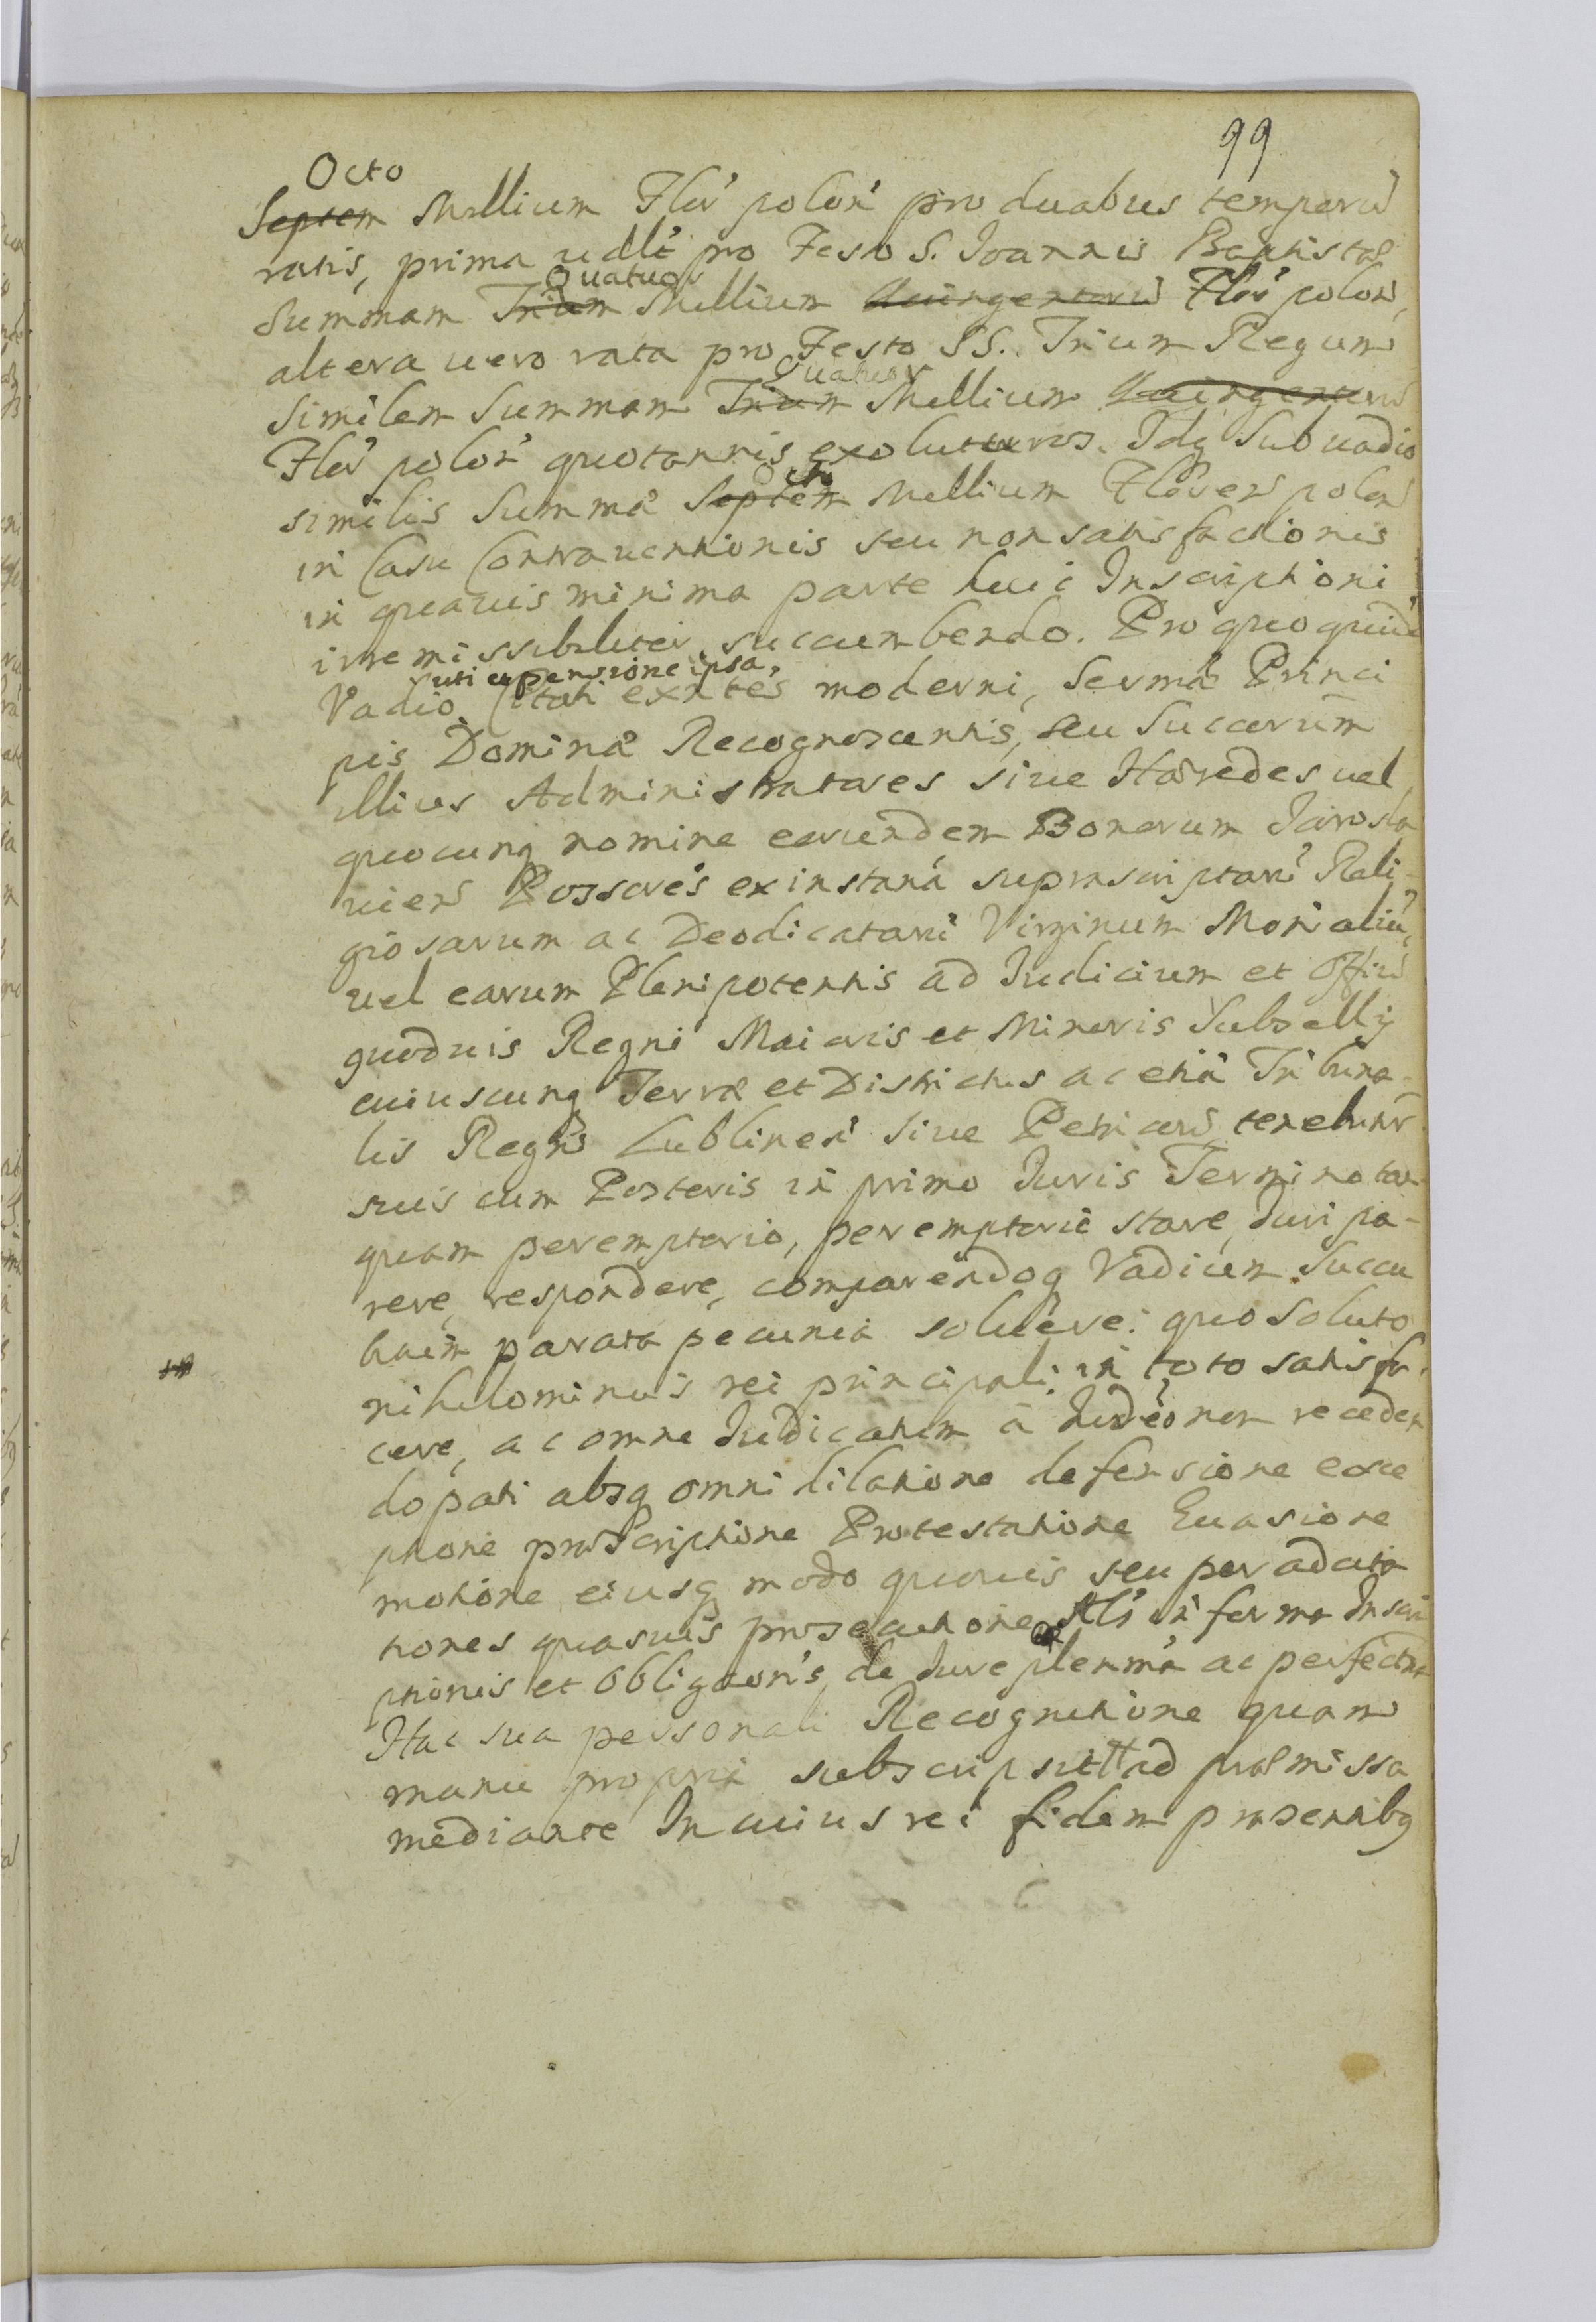 99
Octo
Septem Millium Flor̃ polon̄ pro duabus temporū
ratis, prima vdlt̃ pro Festo S. Joannis Baptistæ
Quatuor
Summam Trium Millium Quingentorū Flor̃ polon̄,
altera uero rata pro Festo SS. Trium Regum
Quatuor
Similem Summam Trium Millium Quingentorū
Flor̃ polon̄ quotannis exoluturos. Idq Sub uadio
Octo
similis Summæ Septem Millium Floren̄ polon̄
in Casu Contrauentionis seu non satisfactionis
in quauis minima parte huic Inscriptioni
irremissibiliter succumbendo. Pro quo quidē
uti et pensione ipsa,
Vadio Citati exn̄tes moderni, Sermæ Princi
pis Dominæ Recognoscentis, seu Succorum
illius Administratores siue Hæredes uel
quocunq nomine earundem Bonorum Jarosla
uien̄ Possores ex instan̄a suprascriptarū Reli-
giosarum ac Deodicatarū Virginum Monialiū,
uel earum Plenipotentis ad Judicium et Offiū
quoduis Regni Maioris et Minoris Subsellij
cuiuscunq Terræ et Districtus ac etiā Tribuna-
lis Regni Lublinen̄ siue Petricou tenebunr̄
suis cum Posteris in primo Juris Termino tan-
quam peremptorio, peremptorie stare, Juri pa-
rere, respondere, comparendoq Vadium Succu
buim parata pecunia soluere: quo soluto
nihilominus rei principali in toto satisfa-
cere, ac omne Judicatum a Judeo non receden
do pati absq omni dilatione defensione exce
ptione proscriptione Protestatione Euasione
motione eiusq modo quouis seu per adcita
tiones quasuis prosecutione Als in forma Inscri
ptionis et Obligaōnis de Jure plenma ac perfectma
Hac sua personali Recognitione quam
manu propria subscripsit ad præmissa
mediante In cuius rei fidem præsentibq